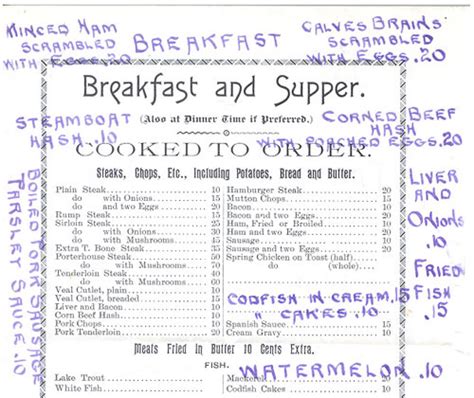 MINCED HAM
SCRAMBLED
WITH EGGS .20
BREAKFAST
CALVES BRAINS
SCRAMBLED
WITH EGGS .20
Breakfast and Supper.
STEAMBOAT
HASH .10
(Also at Dinner Time if Preferred.)
CORNED BEEF
HASH
WITH POACHED EGGS .20
COOKED TO ORDER.
Steaks, Chops, Etc., Including Potatoes, Bread and Butter.
BOILED PORK SAUSAGE
PARSLEY SAUCE .10
Plain Steak 10
do with Onions 15
do and two Eggs 20
Rump Steak 15
Sirloin Steak
do with Onions
do with Mushrooms
Extra T. Bone Steak 35
Porterhouse Steak
do with Mushrooms
Tenderloin Steak
do with Mushrooms
Veal Cutlet, plain
Veal Cutlet, breaded
Liver and Bacon
Corn Beef Hash 10
Pork Chops 10
Pork Tenderloin 20
Hamburger Steak 20
Mutton Chops
Bacon
Bacon and two Eggs
Ham, Fried or Broiled
Ham and two Eggs
Sausage
Sausage and two Eggs
Spring Chicken on Toast (half)
do (whole)
CODFISH IN CREAM .15
" CAKES .10
Spanish Sauce
Cream Gravy
LIVER
AND
ONIONS
.10
FRIED
FISH
.15
Meats Fried in Butter 10 Cents Extra.
FISH.
WATERMELON .10
Lake Trout
White Fish
Mackerel
Codfish Cakes